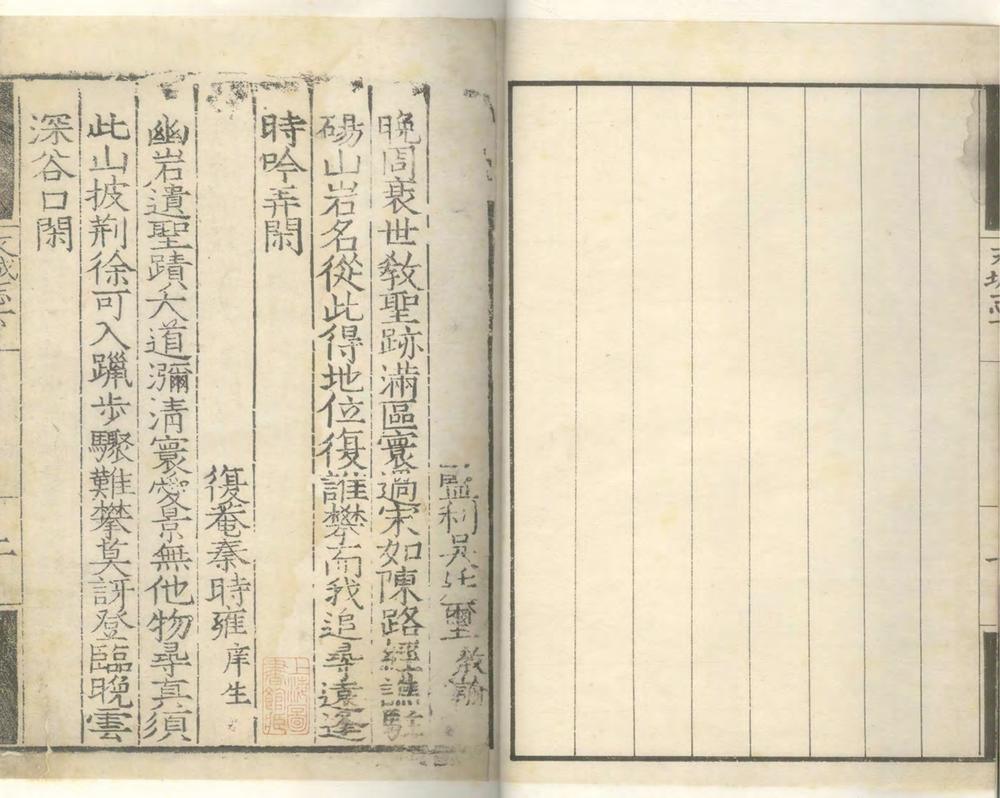 監利吳 璽 教諭
晚周衰世教聖跡滿區寰過宋如陳路經譙駐
碭山岩名從此得地位復誰攀而我追尋遠逢
時吟弄閑
復菴秦時雍庠生
幽岩遺聖蹟大道瀰清寰愛景無他物尋真須
此山披荆徐可入躐步驟難攀莫訝登臨晚雲
深谷口閑
上海圖書館藏